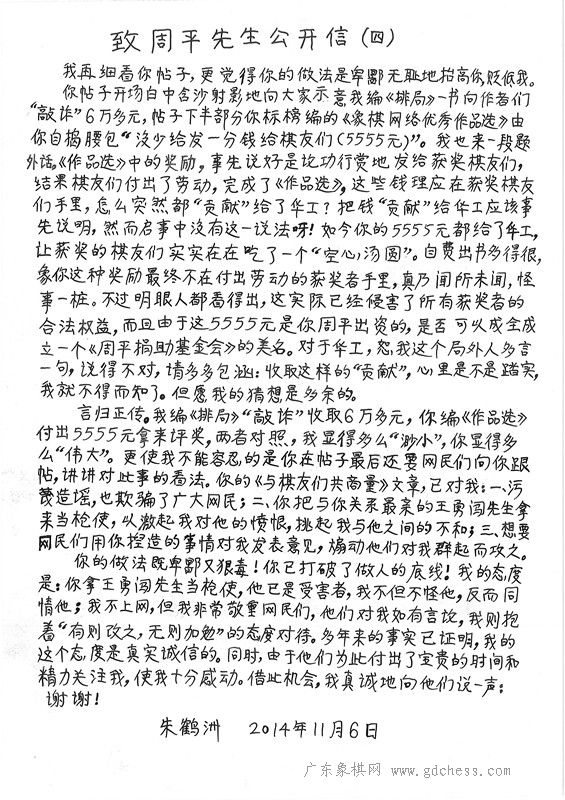 致周平先生公开信(四)
我再细看你帖子,更觉得你的做法是卑鄙无耻地抬高你,贬低我。
你帖子开场白中含沙射影地向大家示意我编《排局》一书向作者们
“敲诈”6万多元,帖子下半部分你标榜编的《象棋网络优秀作品选》由
你自掏腰包“没少给发一分钱给棋友们(5555元)”。我也来一段题
外话。《作品选》中的奖励,事先说好是论功行赏地发给获奖棋友们,
结果棋友们付出了劳动,完成了《作品选》,这些钱理应在获奖棋友
们手里,怎么突然都“贡献”给了华工?把钱“贡献”给华工应该事
先说明,然而启事中没有这一说法呀!如今你的5555元都给了华工,
让获奖的棋友们实实在在吃了一个“空心汤圆”。自费出书多得很,
象你这种奖励最终不在付出劳动的获奖者手里,真乃闻所未闻,怪
事一桩。不过明眼人都看得出,这实际已经侵害了所有获奖者的
合法权益,而且由于这5555元是你周平出资的,是否可以成全成
立一个《周平捐助基金会》的美名。对于华工,恕我这个局外人多言
一句,说得不对,请多多包涵:收取这样的“贡献”,心里是不是踏实,
我就不得而知了。但愿我的猜想是多余的。
言归正传。我编《排局》“敲诈”收取6万多元,你编《作品选》
付出5555元拿来评奖,两者对照,我显得多么“渺小”,你显得多
么“伟大”。更使我不能容忍的是你在帖子最后还要网民们向你跟
帖,讲讲对此事的看法。你的《与棋友们共商量》文章,已对我:一、污
蔑造谣,也欺骗了广大网民;二、你把与你关系最亲的王勇闯先生拿
来当枪使,以激起我对他的愤恨,挑起我与他之间的不和;三、想要
网民们用你捏造的事情对我发表意见,煽动他们对我群起而攻之。
你的做法既卑鄙又狠毒!你已打破了做人的底线!我的态度
是:你拿王勇闯先生当枪使,他已是受害者,我不但不怪他,反而同
情他;我不上网,但我非常敬重网民们,他们对我如有言说,我则抱
着“有则改之,无则加勉”的态度对待。多年来的事实已证明,我的
这个态度是真实诚信的。同时,由于他们为此付出了宝贵的时间和
精力关注我,使我十分感动。借此机会,我真诚地向他们说一声:
谢谢!
朱鹤洲 2014年11月6日
广东象棋网 www.gdchess.com